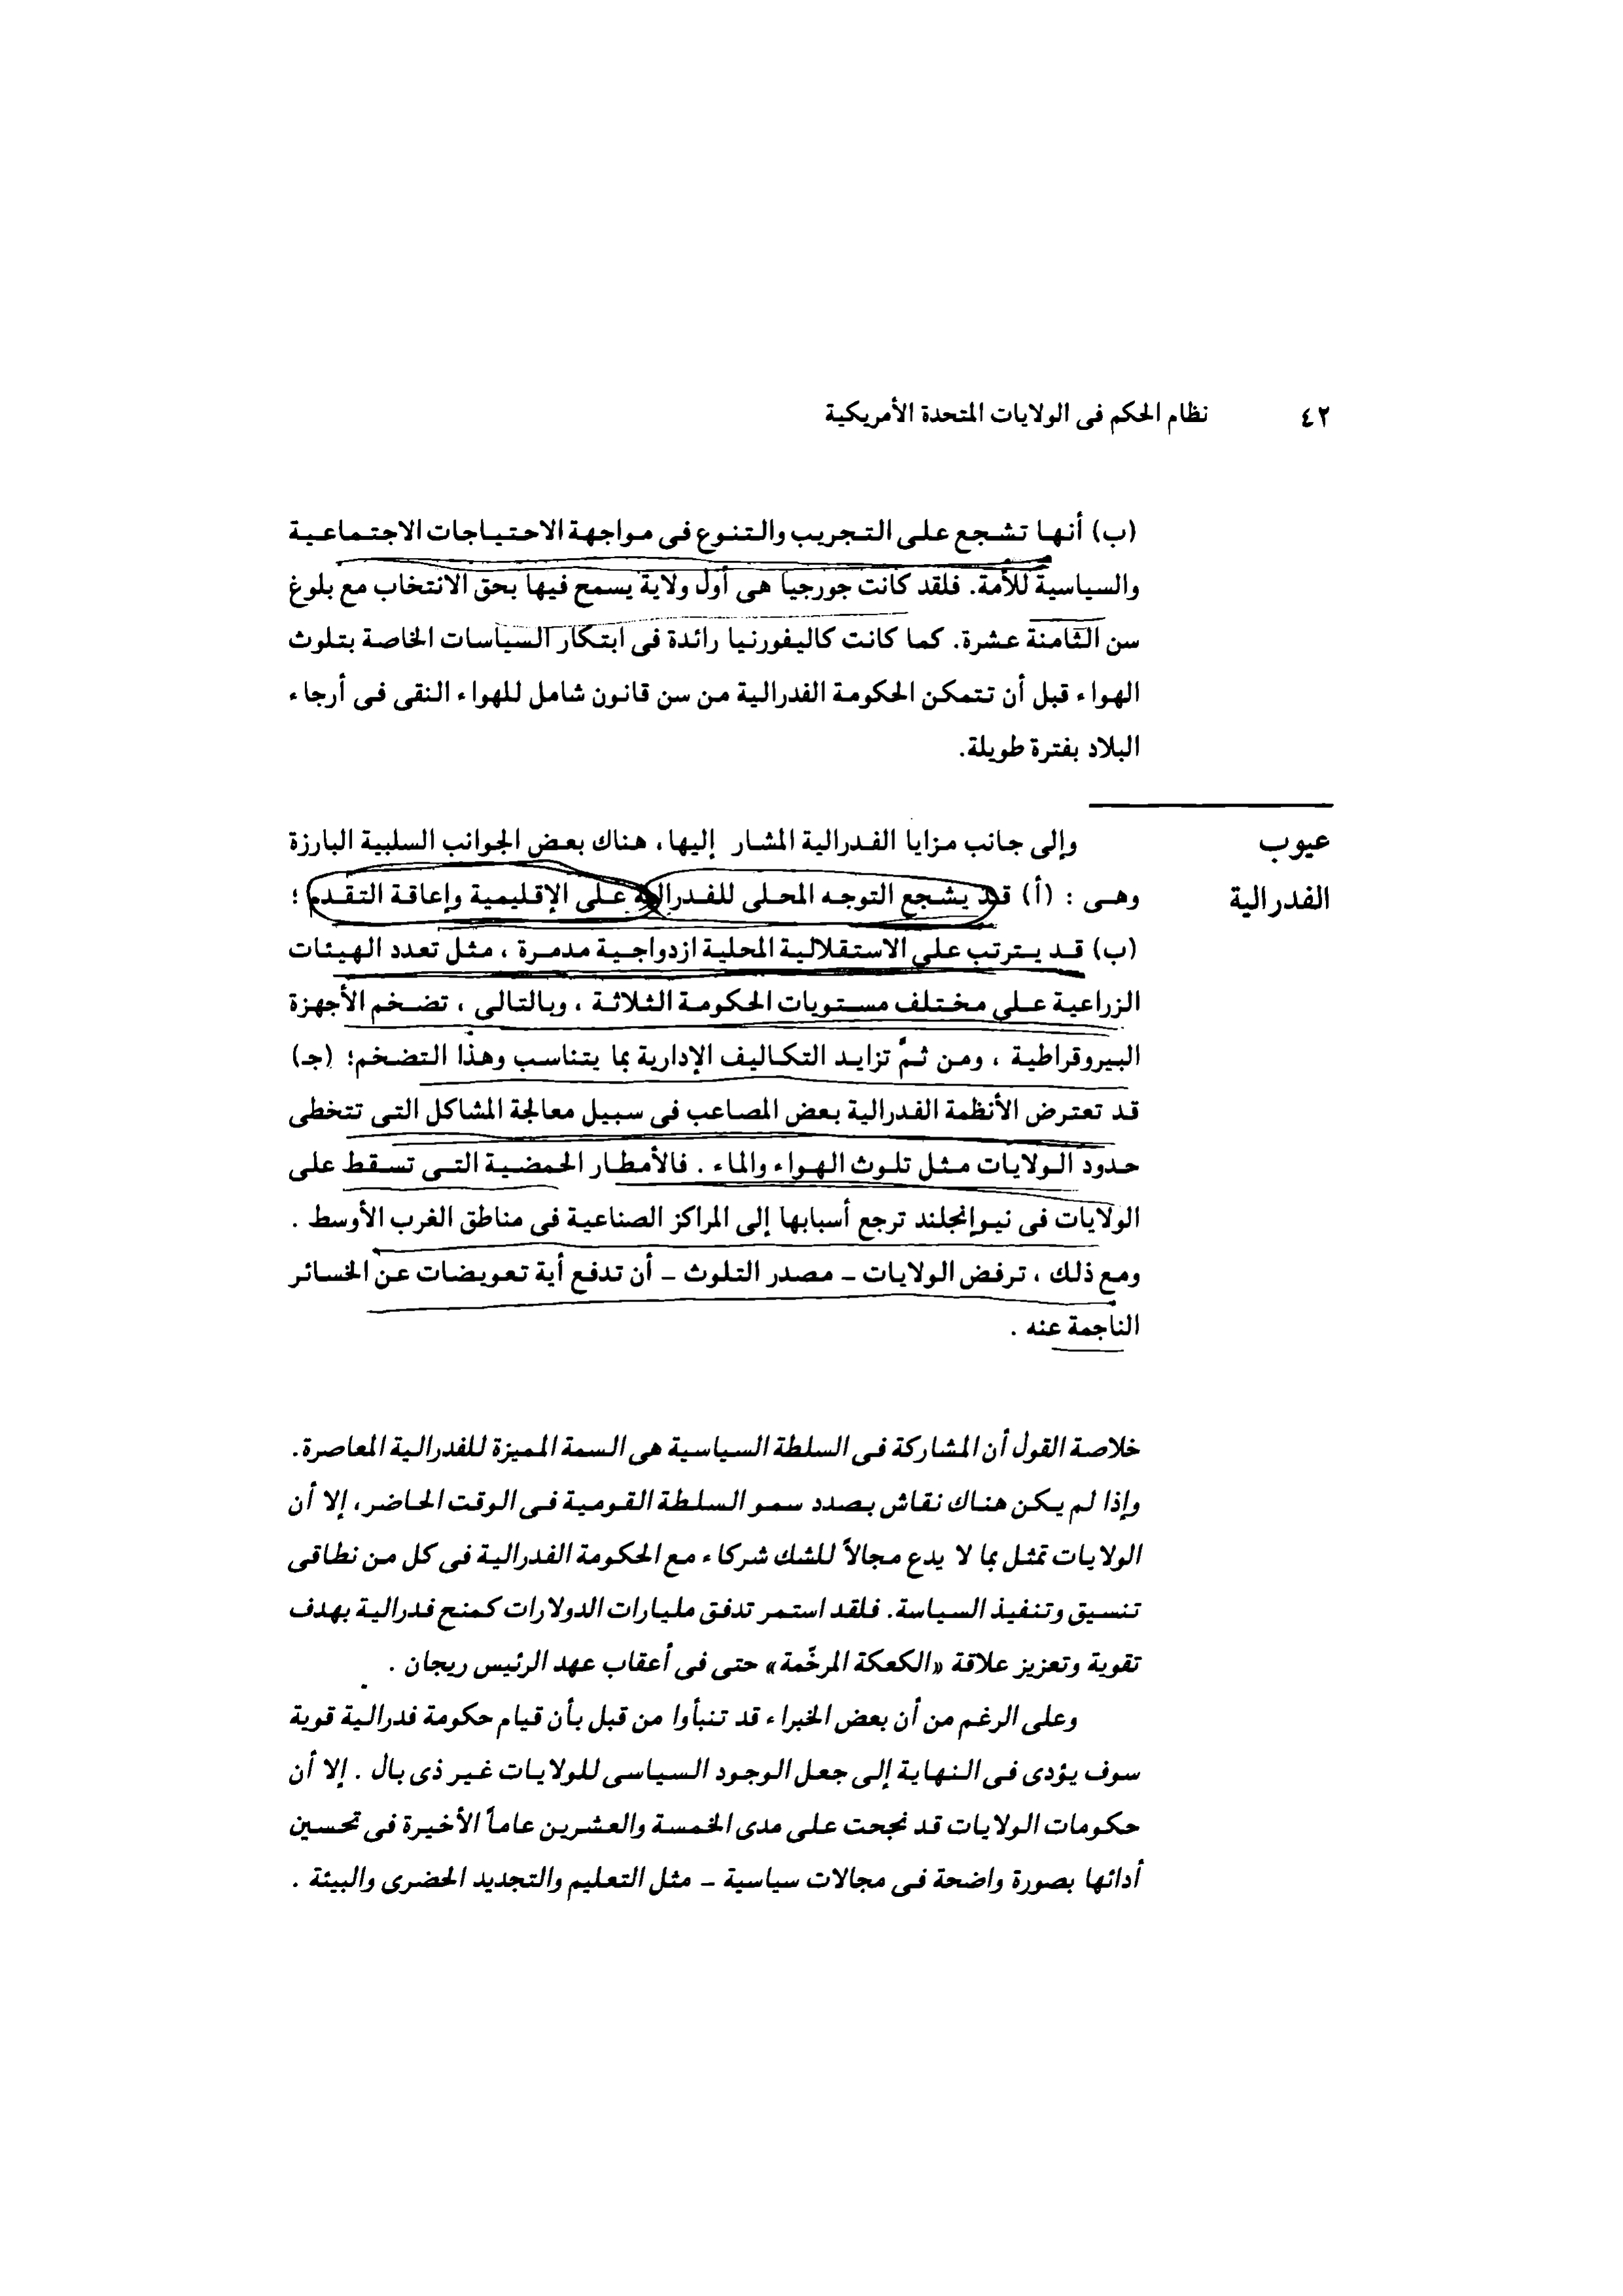 ٤٢ نظام الحكم فى الولايات المتحدة الأمريكية
(ب) أنها تشجع على التجريب والتنوع فى مواجهة الاحتياجات الاجتماعية
والسياسية للأمة. فلقد كانت جورجيا هى أول ولاية يسمح فيها بحق الانتخاب مع بلوغ
سن الثامنة عشرة. كما كانت كاليفورنيا رائدة فى ابتكار السياسات الخاصة بتلوث
الهواء قبل أن تتمكن الحكومة الفدرالية من سن قانون شامل للهواء النقى فى أرجاء
البلاد بفترة طويلة.
عيوب
الفدرالية
وإلى جانب مزايا الفدرالية المشار إليها، هناك بعض الجوانب السلبية البارزة
وهى : (أ) قد يشجع التوجه المحلى للفدرالية على الإقليمية وإعاقة التقدم ؛
(ب) قد يترتب على الاستقلالية المحلية ازدواجية مدمرة ، مثل تعدد الهيئات
الزراعية على مختلف مستويات الحكومة الثلاثة ، وبالتالى ، تضخم الأجهزة
البيروقراطية ، ومن ثمّ تزايد التكاليف الإدارية بما يتناسب وهذا التضخم؛ (جـ)
قد تعترض الأنظمة الفدرالية بعض المصاعب فى سبيل معالجة المشاكل التى تتخطى
حدود الولايات مثل تلوث الهواء والماء . فالأمطار الحمضية التى تسقط على
الولايات فى نيوإنجلند ترجع أسبابها إلى المراكز الصناعية فى مناطق الغرب الأوسط .
ومع ذلك ، ترفض الولايات – مصدر التلوث – أن تدفع أية تعويضات عن الخسائر
الناجمة عنه .
خلاصة القول أن المشاركة فى السلطة السياسية هى السمة المميزة للفدرالية المعاصرة.
وإذا لم يكن هناك نقاش بصدد سمو السلطة القومية فى الوقت الحاضر، إلا أن
الولايات تمثل بما لا يدع مجالاً للشك شركاء مع الحكومة الفدرالية فى كل من نطاقى
تنسيق وتنفيذ السياسة. فلقد استمر تدفق مليارات الدولارات كمنح فدرالية بهدف
تقوية وتعزيز علاقة «الكعكة المرخّمة» حتى فى أعقاب عهد الرئيس ريجان .
وعلى الرغم من أن بعض الخبراء قد تنبأوا من قبل بأن قيام حكومة فدرالية قوية
سوف يؤدى فى النهاية إلى جعل الوجود السياسى للولايات غير ذى بال . إلا أن
حكومات الولايات قد نجحت على مدى الخمسة والعشرين عاماً الأخيرة فى تحسين
أدائها بصورة واضحة فى مجالات سياسية – مثل التعليم والتجديد الحضرى والبيئة .